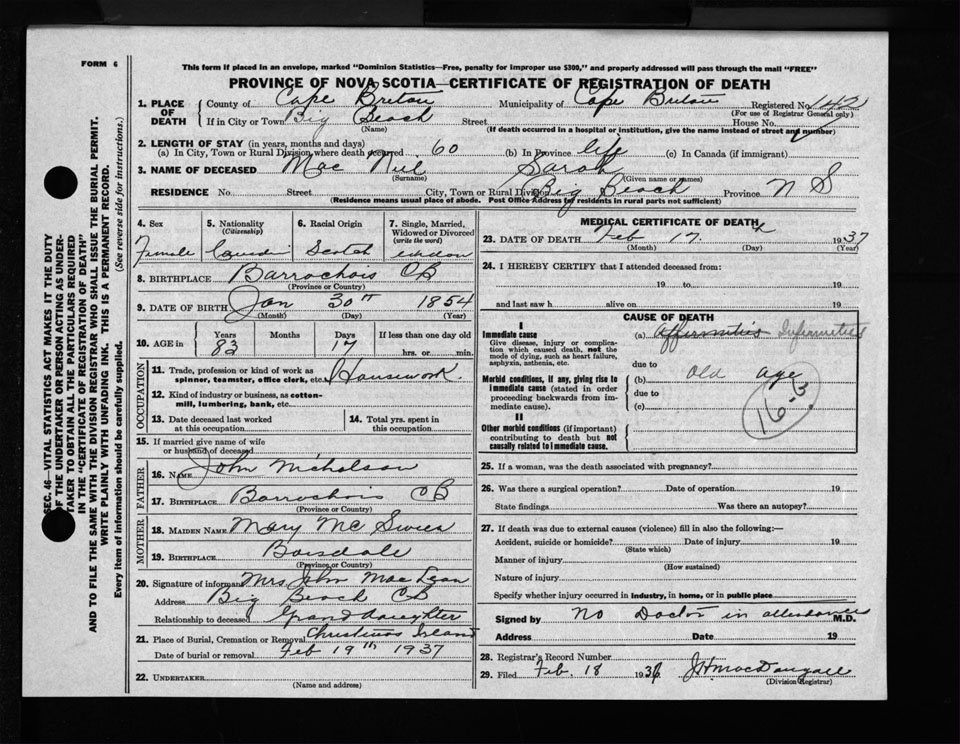 FORM 6
This form if placed in an envelope, marked "Dominion Statistics—Free, penalty for improper use $300," and properly addressed will pass through the mail "FREE"
PROVINCE OF NOVA SCOTIA—CERTIFICATE OF REGISTRATION OF DEATH
1. PLACE OF DEATH
County of Cape Breton Municipality of Cape Breton Registered No. 142
(For use of Registrar General only)
If in City or Town Big Beach Street House No.
(Name) (If death occurred in a hospital or institution, give the name instead of street and number)
2. LENGTH OF STAY (in years, months and days)
(a) In City, Town or Rural Division where death occurred 60 (b) In Province life (c) In Canada (if immigrant)
3. NAME OF DECEASED Mac Neil Sarah
(Surname) (Given name or names)
RESIDENCE No. Street City, Town or Rural Division Big Beach Province N S
(Residence means usual place of abode. Post Office Address for residents in rural parts not sufficient)
4. Sex
Female
5. Nationality
(Citizenship)
6. Racial Origin
Scotch
7. Single, Married, Widowed or Divorced
(write the word)
8. BIRTHPLACE Barrachois CB
(Province or Country)
9. DATE OF BIRTH Jan 30th 1854
(Month) (Day) (Year)
10. AGE in Years Months Days If less than one day old
83 17 hrs. or min.
OCCUPATION
11. Trade, profession or kind of work as spinner, teamster, office clerk, etc. Housework
12. Kind of industry or business, as cotton-mill, lumbering, bank, etc.
13. Date deceased last worked at this occupation
14. Total yrs. spent in this occupation
15. If married give name of wife or husband of deceased
FATHER
16. NAME John Nicholson
17. BIRTHPLACE Barrachois CB
(Province or Country)
MOTHER
18. MAIDEN NAME Mary Mc
19. BIRTHPLACE Boisdale
(Province or Country)
20. Signature of informant Mrs John Mac Lean
Address Big Beach CB
Relationship to deceased Grand daughter
21. Place of Burial, Cremation or Removal Christmas Island
Date of burial or removal Feb 19th 1937
22. UNDERTAKER
(Name and address)
MEDICAL CERTIFICATE OF DEATH
23. DATE OF DEATH Feb 17. 1937
(Month) (Day) (Year)
24. I HEREBY CERTIFY that I attended deceased from:
19 to 19
and last saw h alive on 19
CAUSE OF DEATH
I
Immediate cause
Give disease, injury or complication which caused death, not the mode of dying, such as heart failure, asphyxia, asthenia, etc.
(a) Infirmities
due to
Morbid conditions, if any, giving rise to immediate cause (stated in order proceeding backwards from immediate cause).
(b) Old Age
due to
(c)
16-3
II
Other morbid conditions (if important) contributing to death but not causally related to immediate cause.
25. If a woman, was the death associated with pregnancy?
26. Was there a surgical operation? Date of operation 19
State findings Was there an autopsy?
27. If death was due to external causes (violence) fill in also the following:—
Accident, suicide or homicide? Date of injury 19
(State which)
Manner of injury
(How sustained)
Nature of injury
Specify whether injury occurred in industry, in home, or in public place
Signed by No Doctor in attendance M.D.
Address Date 19
28. Registrar's Record Number
29. Filed Feb. 18 193 J H MacDougall
(Division Registrar)
SEC. 46—VITAL STATISTICS ACT MAKES IT THE DUTY
OF THE UNDERTAKER OR PERSON ACTING AS UNDER-
TAKER TO OBTAIN ALL THE PARTICULARS REQUIRED
IN THE "CERTIFICATE OF REGISTRATION OF DEATH"
AND TO FILE THE SAME WITH THE DIVISION REGISTRAR WHO SHALL ISSUE THE BURIAL PERMIT.
WRITE PLAINLY WITH UNFADING INK. THIS IS A PERMANENT RECORD.
Every item of information should be carefully supplied. (See reverse side for instructions.)